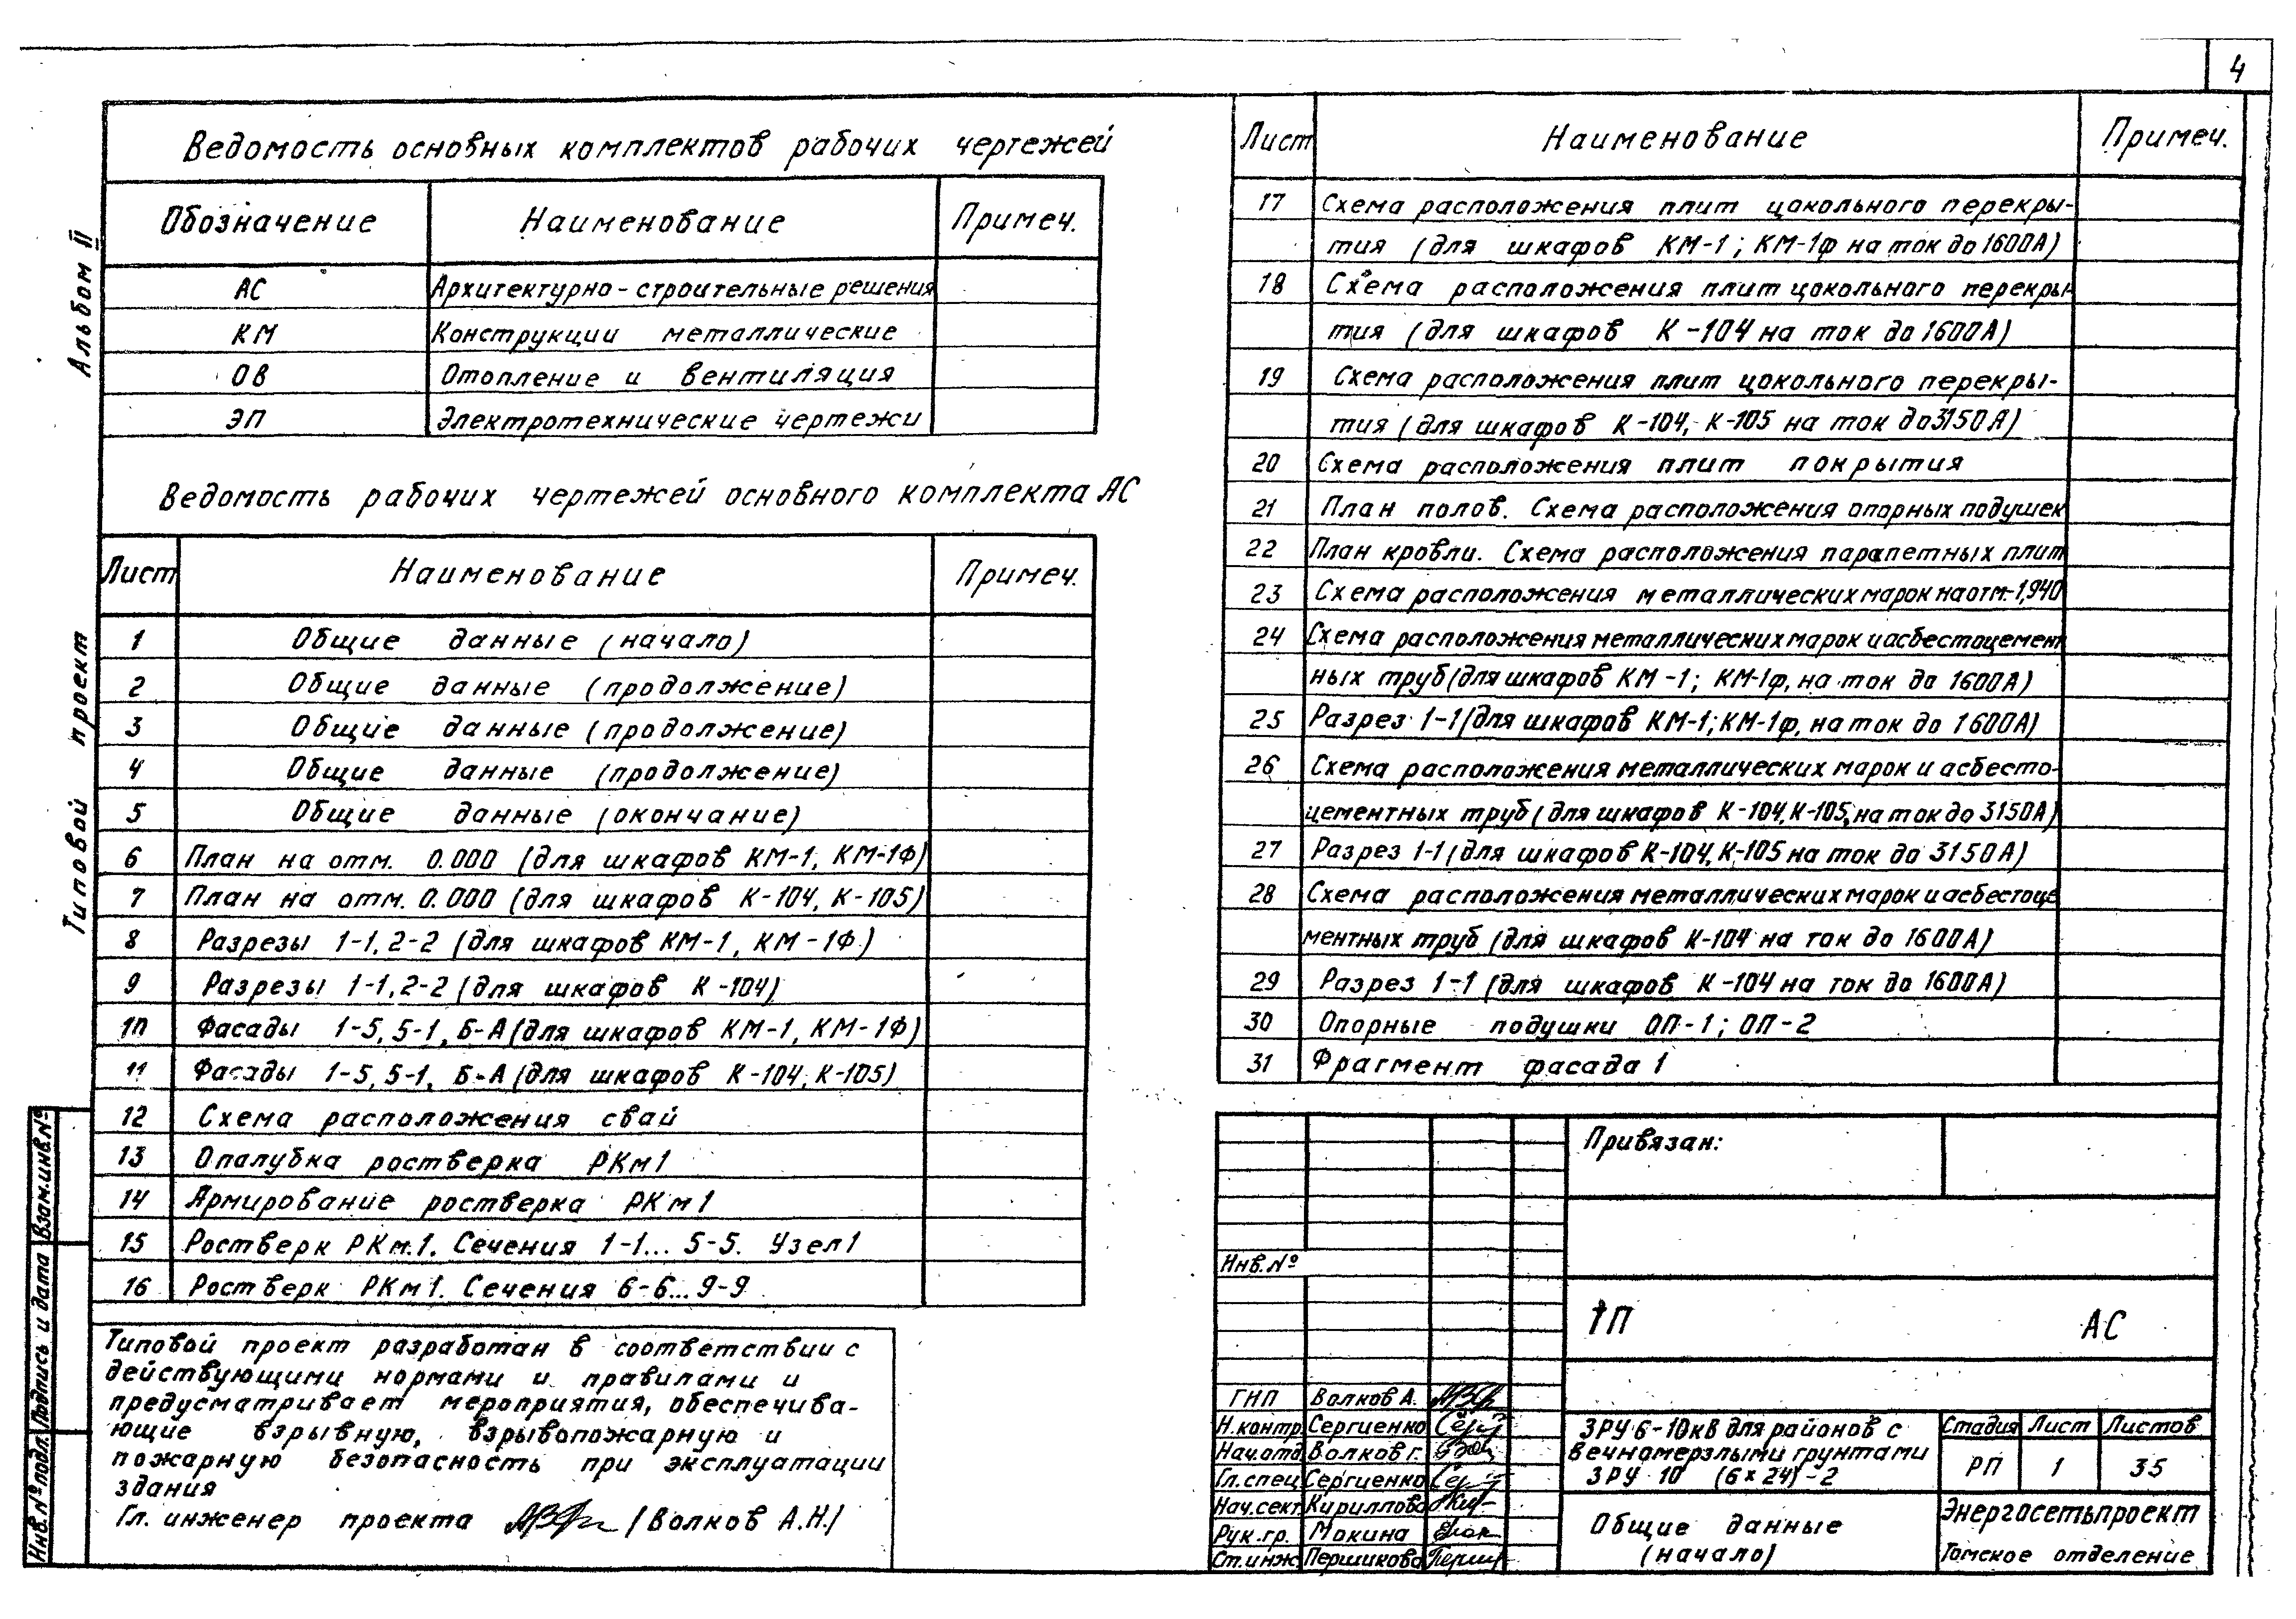 4
Альбом II
Типовой проект
Ведомость основных комплектов рабочих чертежей
Обозначение Наименование Примеч.
АС Архитектурно-строительные решения
КМ Конструкции металлические
ОВ Отопление и вентиляция
ЭП Электротехнические чертежи
Ведомость рабочих чертежей основного комплекта АС
Лист Наименование Примеч.
1 Общие данные (начало)
2 Общие данные (продолжение)
3 Общие данные (продолжение)
4 Общие данные (продолжение)
5 Общие данные (окончание)
6 План на отм. 0.000 (для шкафов КМ-1, КМ-1Ф)
7 План на отм. 0.000 (для шкафов К-104, К-105)
8 Разрезы 1-1, 2-2 (для шкафов КМ-1, КМ-1Ф)
9 Разрезы 1-1, 2-2 (для шкафов К-104)
10 Фасады 1-5, 5-1, Б-А (для шкафов КМ-1, КМ-1Ф)
11 Фасады 1-5, 5-1, Б-А (для шкафов К-104, К-105)
12 Схема расположения свай
13 Опалубка ростверка РКм1
14 Армирование ростверка РКм1
15 Ростверк РКм.1. Сечения 1-1... 5-5. Узел 1
16 Ростверк РКм1. Сечения 6-6...9-9
Типовой проект разработан в соответствии с
действующими нормами и правилами и
предусматривает мероприятия, обеспечива-
ющие взрывную, взрывопожарную и
пожарную безопасность при эксплуатации
здания
Гл. инженер проекта /Волков А.Н./
Взам.инв.№
Подпись и дата
Инв.№подл.
Лист Наименование Примеч.
17 Схема расположения плит цокольного перекры-
тия (для шкафов КМ-1; КМ-1ф на ток до 1600А)
18 Схема расположения плит цокольного перекры-
тия (для шкафов К-104 на ток до 1600А)
19 Схема расположения плит цокольного перекры-
тия (для шкафов К-104, К-105 на ток до 3150А)
20 Схема расположения плит покрытия
21 План полов. Схема расположения опорных подушек
22 План кровли. Схема расположения парапетных плит
23 Схема расположения металлических марок на отм-1,940
24 Схема расположения металлических марок и асбестоцемент
ных труб (для шкафов КМ-1; КМ-1ф, на ток до 1600А)
25 Разрез 1-1 (для шкафов КМ-1; КМ-1ф, на ток до 1600А)
26 Схема расположения металлических марок и асбесто-
цементных труб (для шкафов К-104, К-105, на ток до 3150А)
27 Разрез 1-1 (для шкафов К-104, К-105 на ток до 3150А)
28 Схема расположения металлических марок и асбестоце
ментных труб (для шкафов К-104 на ток до 1600А)
29 Разрез 1-1 (для шкафов К-104 на ток до 1600А)
30 Опорные подушки ОП-1; ОП-2
31 Фрагмент фасада 1
Привязан:
Инв.№
ТП АС
ГИП Волков А.
Н.контр. Сергиенко
Нач.отд. Волков г.
Гл.спец. Сергиенко
Нач.сект. Кириллова
Рук.гр. Мокина
Ст.инж. Першикова
ЗРУ 6-10кВ для районов с
вечномерзлыми грунтами
ЗРУ 10 (6×24)-2
Стадия Лист Листов
РП 1 35
Общие данные
(начало)
Энергосетьпроект
Томское отделение